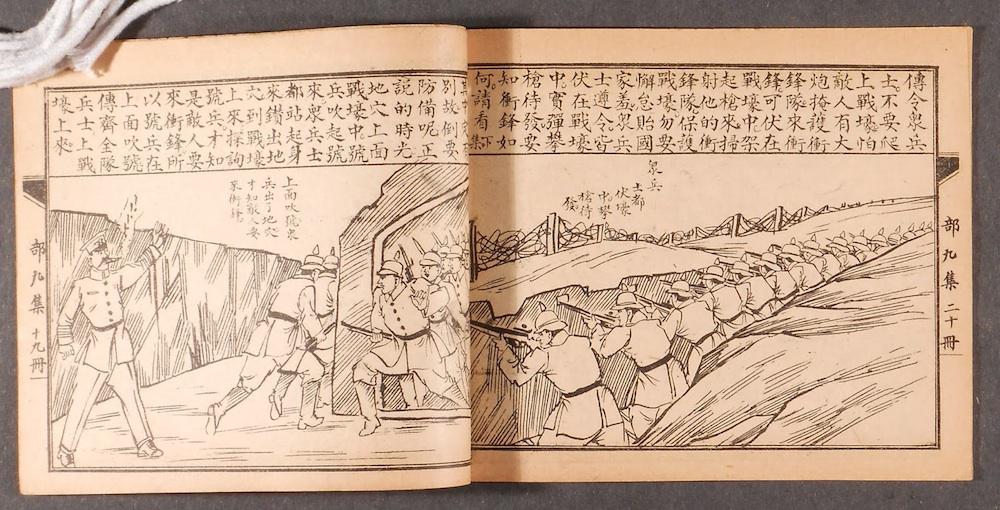 傳令衆兵
士不要爬
上戰壕怕
敵人有大
炮掩護衝
鋒隊來衝
鋒可伏在
戰壕中架
起槍來掃
射他的衝
鋒隊保護
戰壕勿要
懈怠貽國
家羞衆兵
士遵令皆
伏在戰壕
中實彈攀
槍待發要
知衝鋒如
何請看下集
衆兵
士都
伏壕
中攀
槍待
發
部九集 二十冊
別故倒要
防備呢正
説的時光
地穴上面
戰壕中號
兵吹起號
來衆兵士
都站起身
來鑽出地
穴到戰壕
上來探詢
號兵才知
是敵人要
來衝鋒所
以號兵在
上面吹號
傳齊全隊
兵士上戰
壕上來
上面吹號衆
兵出了地穴
才知敵人要
來衝鋒
部九集 十九冊